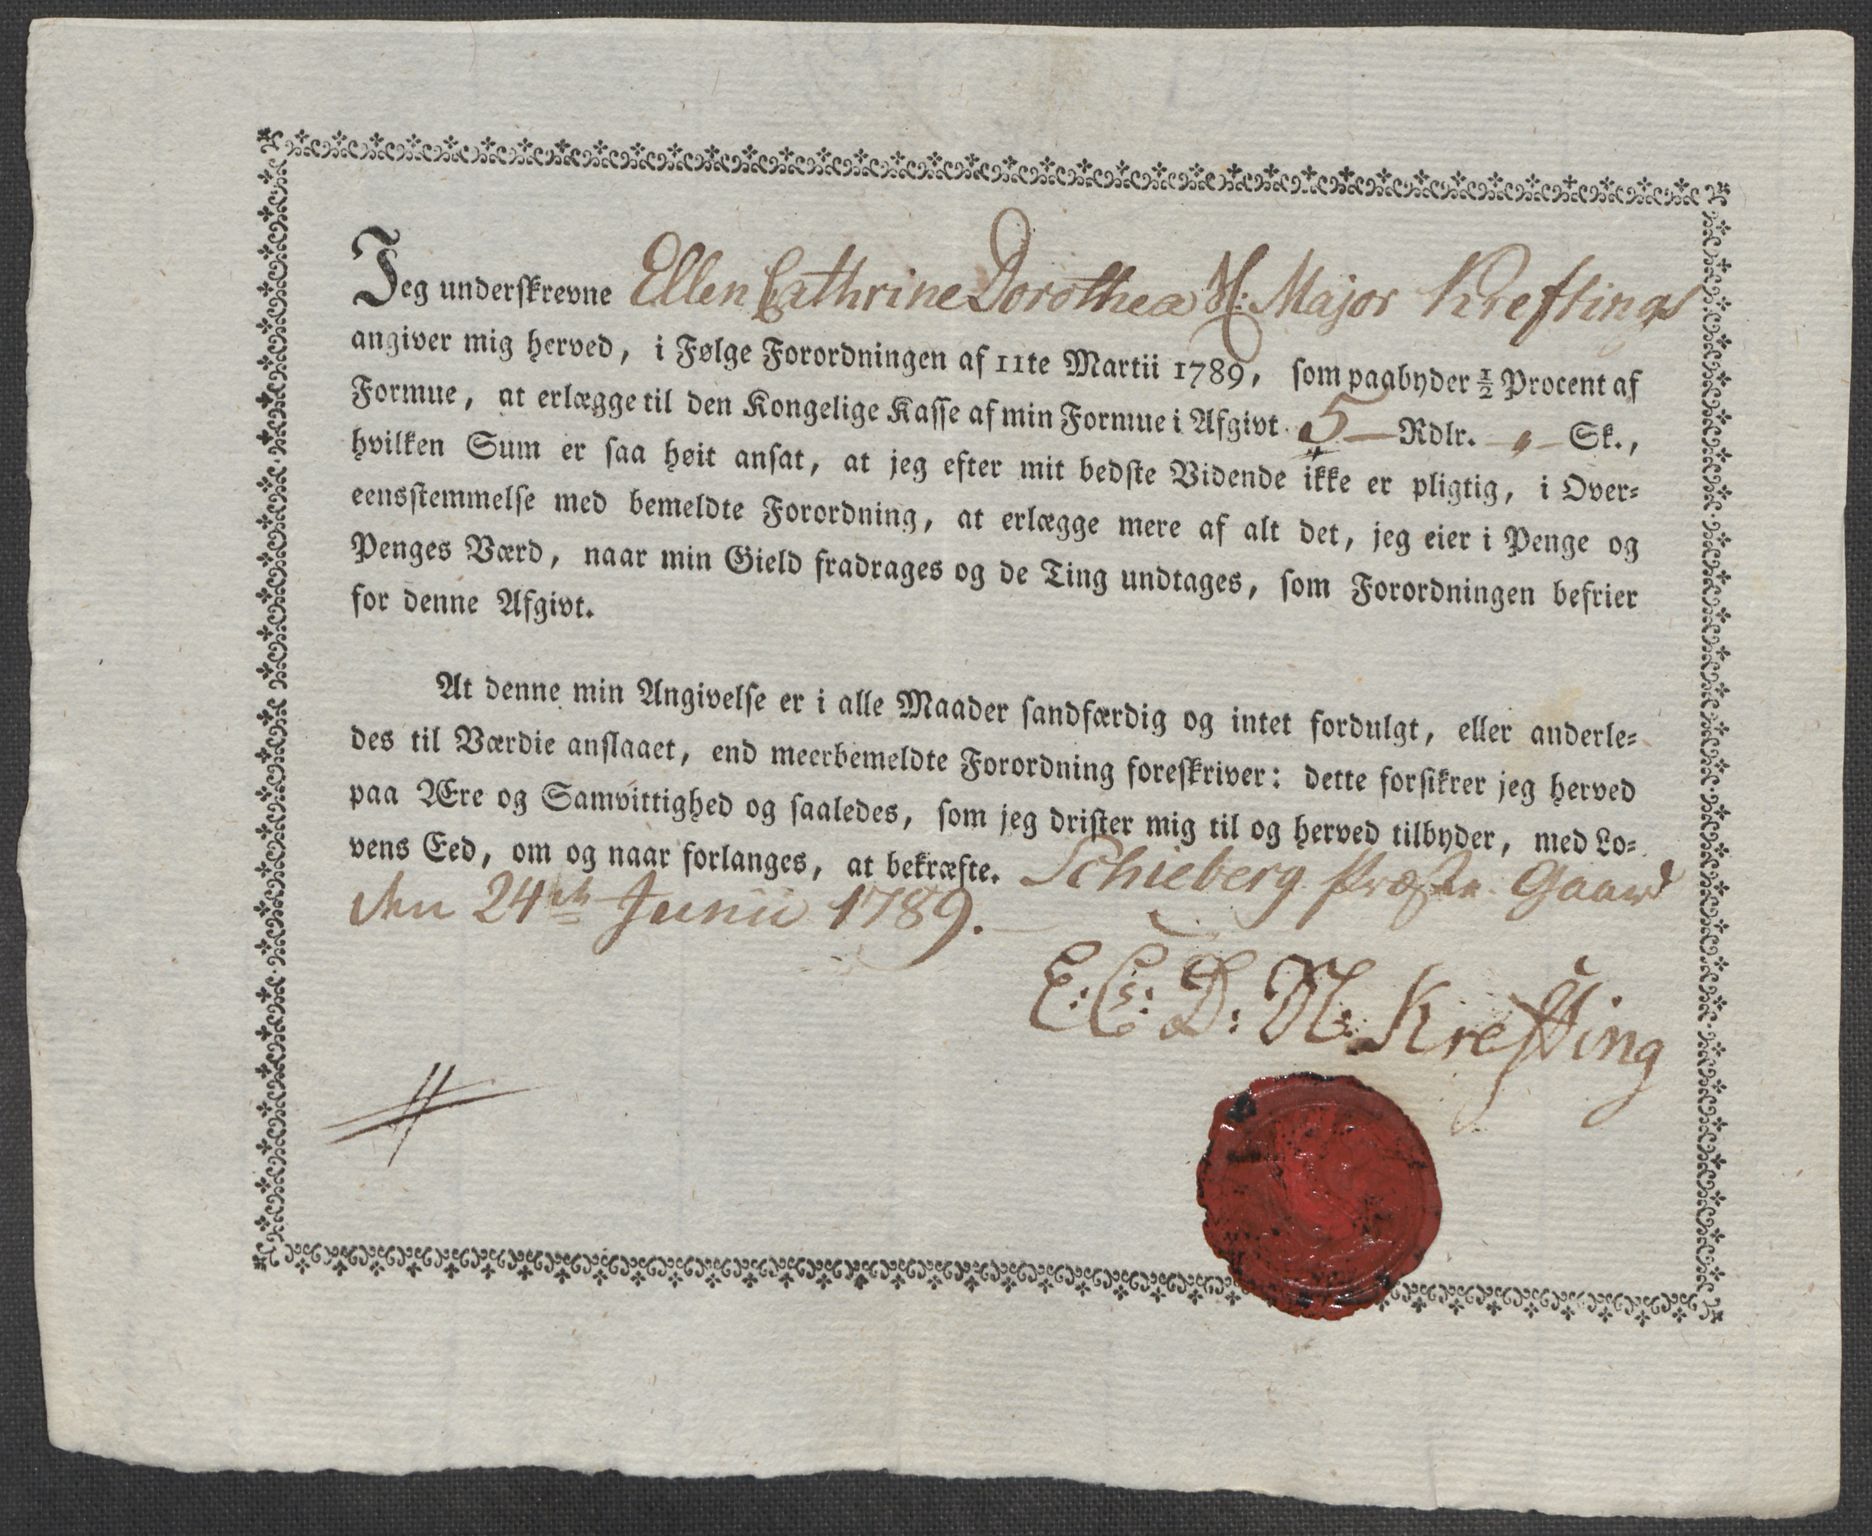 Jeg underskrevne Ellen Cathrine Dorothea N: Major Kreftings
angiver mig herved, i Følge Forordningen af 11te Martii 1789, som paabyder ½ Procent af
Formue, at erlægge til den Kongelige Kasse af min Formue i Afgivt 5 — Rdlr. — „ — Sk.,
hvilken Sum er saa høit ansat, at jeg efter mit bedste Vidende ikke er pligtig, i Over-
eensstemmelse med bemeldte Forordning, at erlægge mere af alt det, jeg eier i Penge og
Penges Værd, naar min Gield fradrages og de Ting undtages, som Forordningen befrier
for denne Afgivt.
At denne min Angivelse er i alle Maader sandfærdig og intet fordulgt, eller anderle-
des til Værdie anslaaet, end meerbemeldte Forordning foreskriver: dette forsikrer jeg herved
paa Ære og Samvittighed og saaledes, som jeg drister mig til og herved tilbyder, med Lo-
vens Eed, om og naar forlanges, at bekræfte. Schieberg Præste Gaard
den 24de Junii 1789.
E: C: D: N: Krefting